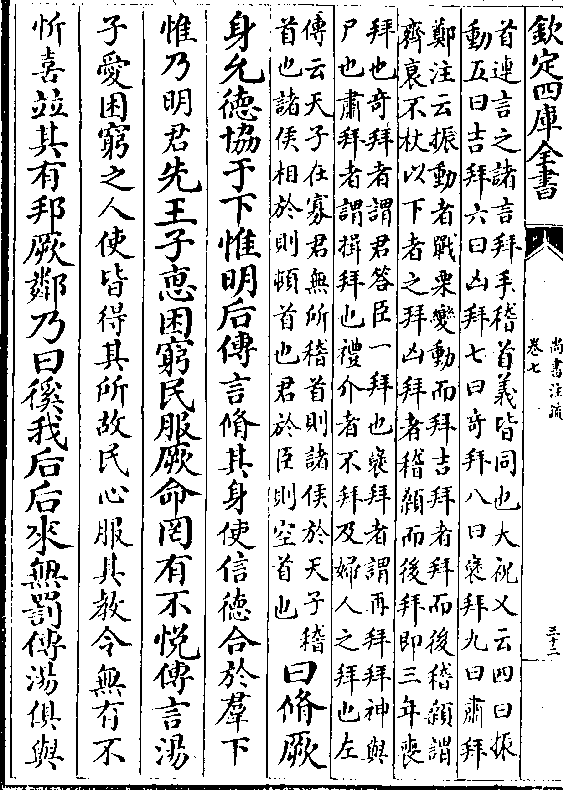 欽定四庫全書
尚書注疏
卷七
三十二
首連言之諸言拜手稽首義皆同也大祝又云四曰振
動五曰吉拜六曰凶拜七曰奇拜八曰襃拜九曰肅拜
鄭注云振動者戰栗變動而拜吉拜者拜而後稽顙謂
齊衰不杖以下者之拜凶拜者稽顙而後拜即三年喪
拜也奇拜者謂君答臣一拜也襃拜者謂再拜拜神與
尸也肅拜者謂揖拜也禮介者不拜及婦人之拜也左
傳云天子在寡君無所稽首則諸侯於天子稽
首也諸侯相於則頓首也君於臣則空首也
曰脩厥
身允德協于下惟明后傳言脩其身使信德合於羣下
惟乃明君先王子惠困窮民服厥命罔有不悦傳言湯
子愛困窮之人使皆得其所故民心服其教令無有不
忻喜並其有邦厥鄰乃曰徯我后后來無罰傳湯俱與